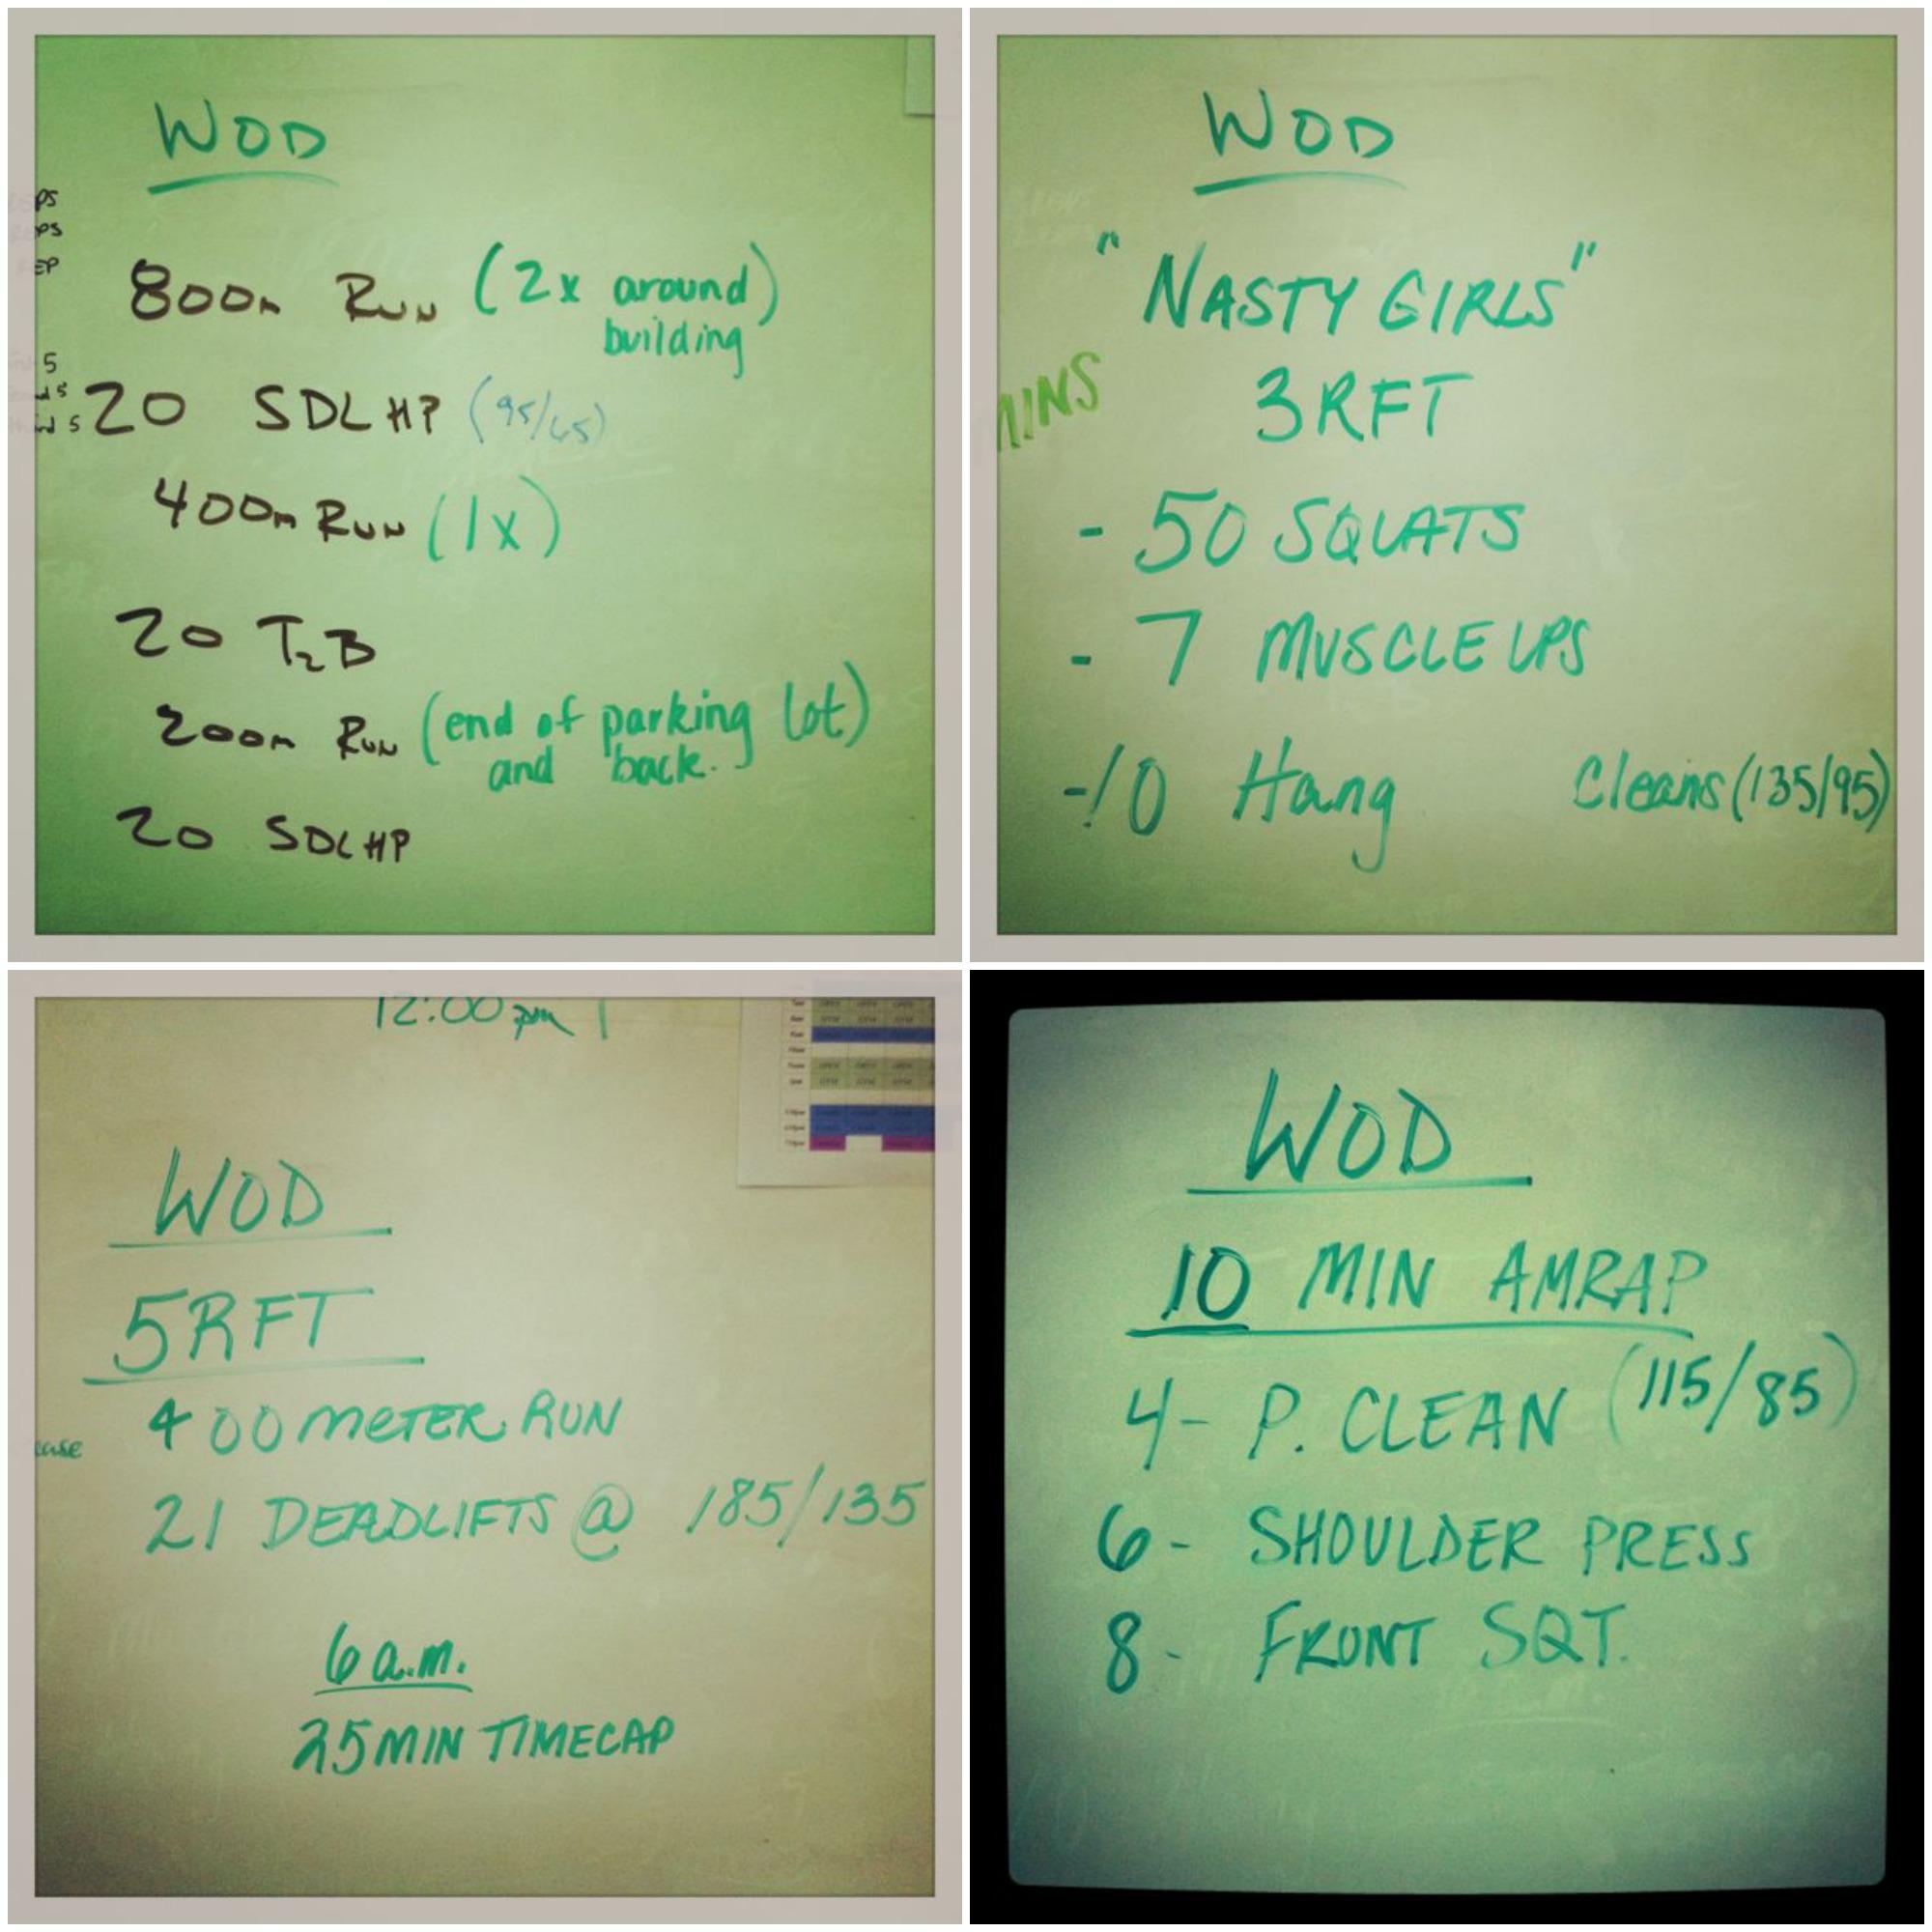 WOD
PS
PS
EP
800m RUN (2x around)
building
5
5
5
20 SDLHP (95/65)
400m RUN (1x)
20 T2B
200m RUN (end of parking lot)
and back.
20 SDLHP
WOD
"NASTY GIRLS"
3RFT
MINS
- 50 SQUATS
- 7 MUSCLE UPS
- 10 Hang Cleans (135/95)
12:00 pm
WOD
5RFT
400 METER RUN
21 DEADLIFTS @ 185/135
6 a.m.
25 MIN TIMECAP
WOD
10 MIN AMRAP
4- P. CLEAN (115/85)
6- SHOULDER PRESS
8- FRONT SQT.